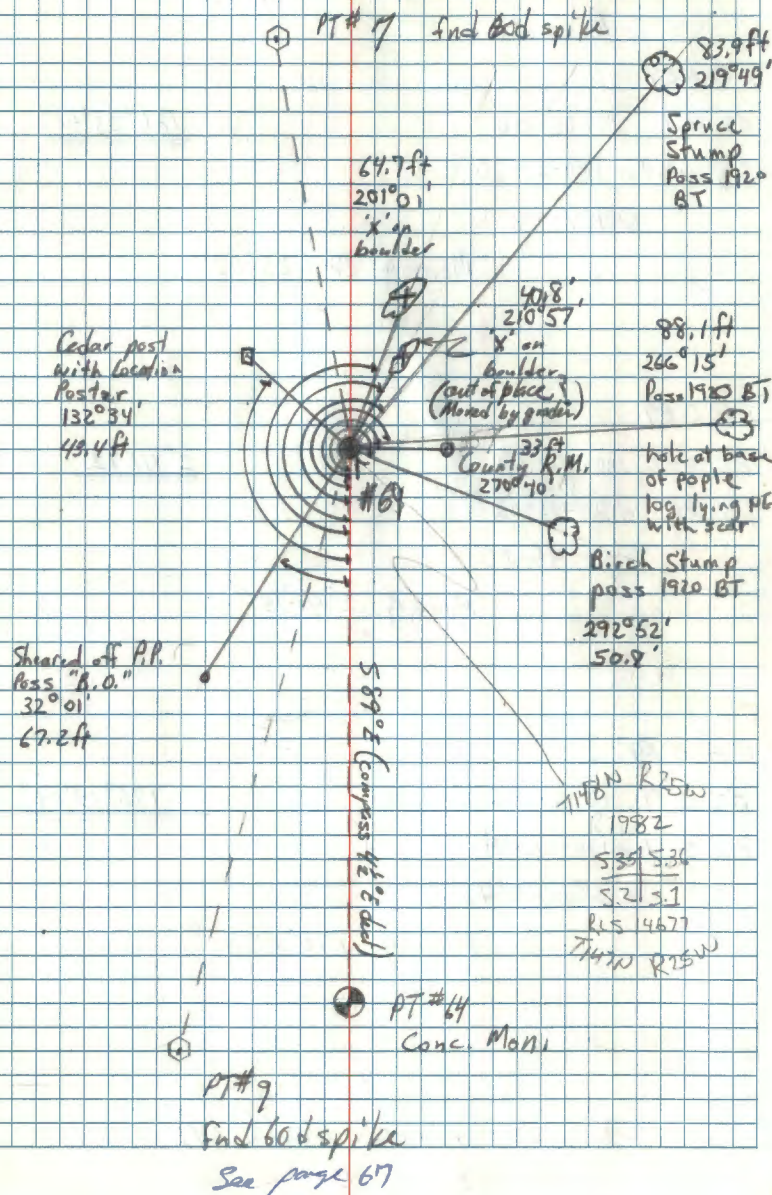 PT# 7 fnd 60d spike
83.9ft
219°49'
Spruce
Stump
Poss 1920
BT
64.7ft
201°01'
'X' on
boulder
40.8'
210°57'
'X' on
boulder
(out of place
Moved by grader)
88.1ft
266°15'
Poss 1920 BT
hole at base
of pople
log lying NE
with scar
Cedar post
with Location
Poster
132°34'
43.4ft
33ft
County R.M.
270°40'
Birch Stump
poss 1920 BT
292°52'
50.8'
Sheared off P.P.
Poss "B.O."
32°01'
67.2ft
S89°E (compass 4½°E decl)
T148N R25W
1982
S.35 S.36
S.2 S.1
RLS 14677
T147N R25W
PT #64
Conc. Mon.
PT# 9
fnd 60d spike
See page 67